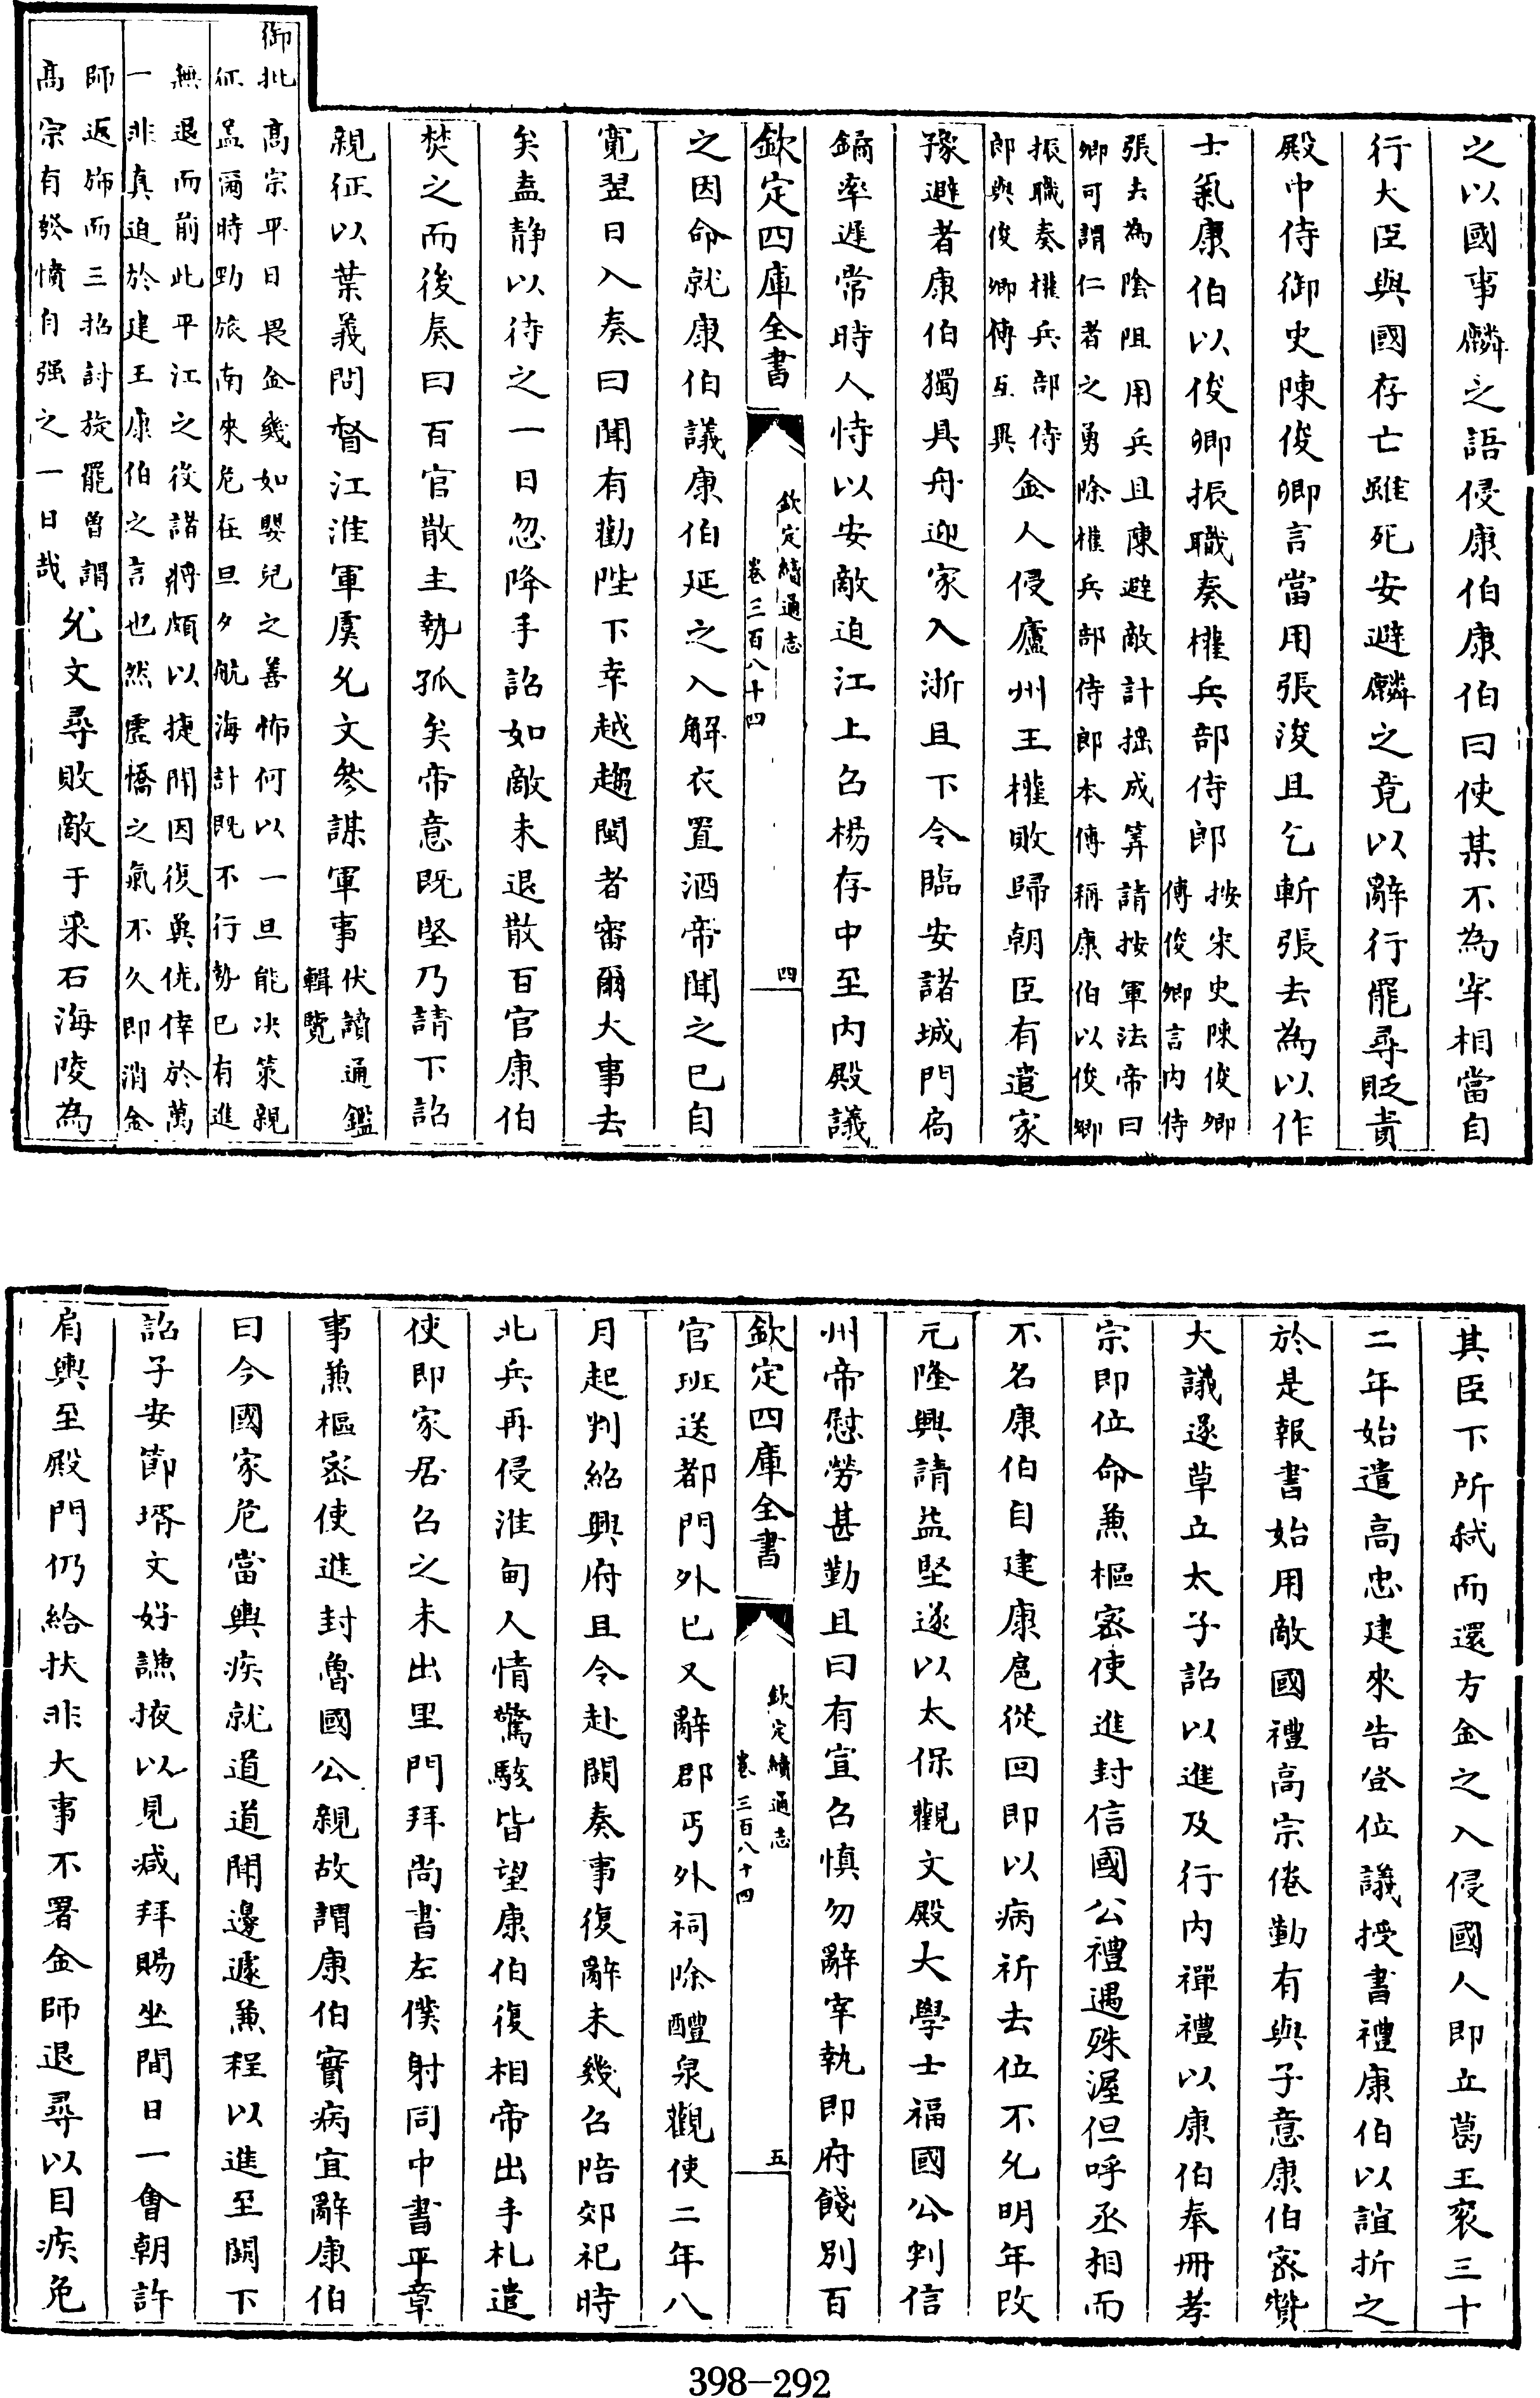 之以國事麟之語侵康伯康伯曰使某不為宰相當自
行大臣與國存亡雖死安避麟之竟以辭行罷尋貶責
殿中侍御史陳俊卿言當用張浚且乞斬張去為以作
士氣康伯以俊卿振職奏權兵部侍郎按宋史陳俊卿
傳俊卿言内侍
張去為陰阻用兵且陳避敵計摇成筭請按軍法帝曰
卿可謂仁者之勇除權兵部侍郎本傳稱康伯以俊卿
振職奏權兵部侍
郎與俊卿傳互異金人侵廬州王權敗歸朝臣有遣家
豫避者康伯獨具舟迎家入浙且下令臨安諸城門扃
鐍率遲常時人恃以安敵迫江上召楊存中至内殿議
欽定四庫全書
欽定續通志
卷三百八十四
四
之因命就康伯議康伯延之入解衣置酒帝聞之已自
寛翌日入奏曰聞有勸陛下幸越趨閩者審爾大事去
矣盍静以待之一日忽降手詔如敵未退散百官康伯
焚之而後奏曰百官散主勢孤矣帝意既堅乃請下詔
親征以葉義問督江淮軍虞允文參謀軍事伏讀通鑑
輯覽
御批髙宗平日畏金幾如嬰兒之善怖何以一旦能決策親
征盖爾時勍旅南來危在旦夕航海計既不行勢已有進
無退而前此平江之役諸將頗以捷聞因復冀僥倖於萬
一非真迫於建王康伯之言也然虚憍之氣不久即消金
師返斾而三招討旋罷曽謂
髙宗有發憤自强之一日哉允文尋敗敵于采石海陵為
其臣下所弑而還方金之入侵國人即立葛王褎三十
二年始遣高忠建來告登位議授書禮康伯以誼折之
於是報書始用敵國禮高宗倦勤有與子意康伯宻贊
大議遂草立太子詔以進及行内禪禮以康伯奉冊孝
宗即位命兼樞宻使進封信國公禮遇殊渥但呼丞相而
不名康伯自建康扈從回即以病祈去位不允明年改
元隆興請益堅遂以太保觀文殿大學士福國公判信
州帝慰勞甚勤且曰有宣召慎勿辭宰執即府餞别百
欽定四庫全書
欽定續通志
卷三百八十四
五
官班送都門外已又辭郡丐外祠除醴泉觀使二年八
月起判紹興府且令赴闕奏事復辭未幾召陪郊祀時
北兵再侵淮甸人情驚駭皆望康伯復相帝出手札遣
使即家居召之未出里門拜尚書左僕射同中書平章
事兼樞宻使進封魯國公親故謂康伯實病宜辭康伯
曰今國家危當輿疾就道道聞邊遽兼程以進至闕下
詔子安節壻文好謙掖以見减拜賜坐間日一會朝許
肩輿至殿門仍給扶非大事不署金師退尋以目疾免
398-292